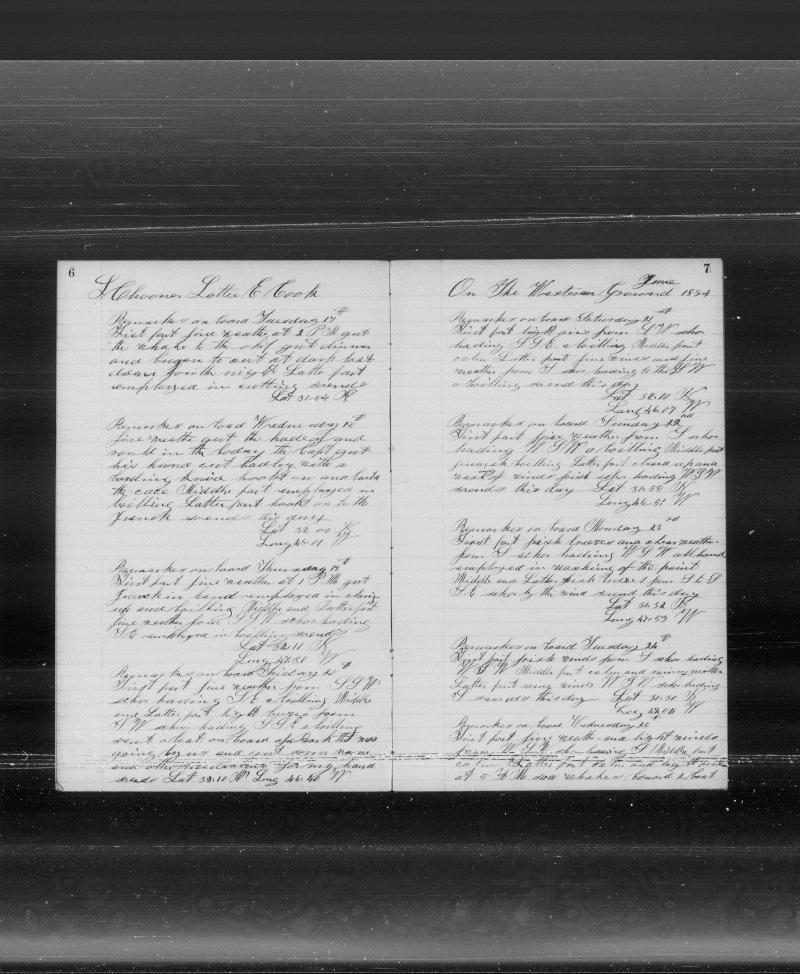 6
Schooner Lottie E Cook
Remarks on board Tuesday 17th
First part fine weather at 2 P M got
the whale to the ship got dinner
and began to cut at dark lost
down for the night Latter part
employed in cutting so ends
Lat 31.54 N
Remarks on board Wednesday 18th
fine weathe got the hade of and
in the boday the Capt got
his hand cut badley with a
bording knive hooks on and
the cace Middle part employed in
boiling Latter part hooks on to the
Junck so ends this day
Lat 32.00 N
Long 48.01 W
Remarks on board Thursday 19th
First part fine weather at 1 P M got
Junck in hand employed in clearing
up and boiling Middle and Latter part
fine weather from S S W schor heading
S E employed in boiling so ends
Lat 32.11 N
Long 47.58 W
Remarks on board Friday 20th
First part fine weather from S S W
schor heading S E a boiling Middle
and Latter part light breeses from
S W schor heading S S E a boiling
sent a boat on board of a bark that was
going by us and got some
and other for my hand
so ends Lat 32.10 N Long 46.46 W
7
On The Western Ground June 1884
Remarks on board Saturday 21st
First part light airs from S W schor
heading S S E a boiling Middle part
calm Latter part fine winds and fine
weather from S schor heading to the W
a boiling so end this day
Lat 32.10 N
Long 46.17 W
Remarks on board Sunday 22nd
First part fine weather from S schor
heading W S W a boiling Middle part
finnesh boiling Latter part cleard up and
winds fresh schor heading W S W
so ends this day Lat 31.58 N
Long 46.51 W
Remarks on board Monday 23rd
First part fresh breeses and clear weather
from S schor heading W S W all hands
employed in washing of the paint
Middle and Latter fresh breeses from S to S
S E schor by the wind so end this day
Lat 31.32 N
Long 47.53 W
Remarks on board Tuesday 24th
First part fresh winds from S schor heading
W S W Middle part calm and rainey weather
Latter part winds W S W schor heading
S so ends this day Lat 31.30 N
Long 48.04 W
Remarks on board Wednesday 25th
First part fine weather and light winds
from W S W schor heading S Middle part
calm Latter part calm and light winds
at 5 P M saw whales lowerd a boat